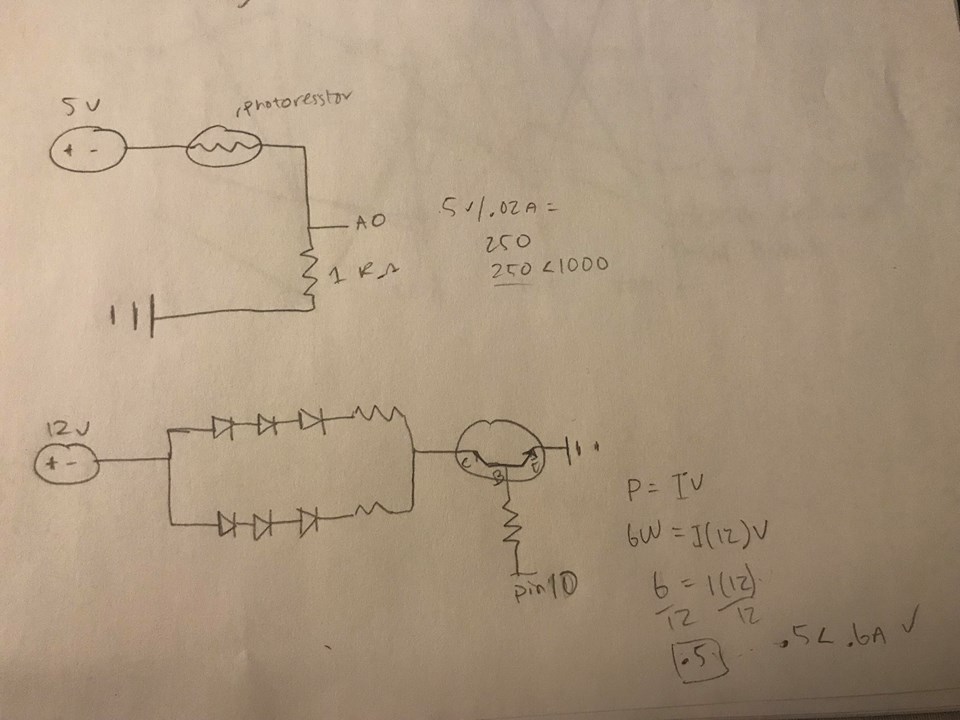 5V
photoresstor
+ -
A0
5V/.02A =
250
250 < 1000
1 KΩ
12V
+ -
C
B
E
pin10
P = IV
6W = I(12)V
6 = I(12)
12 12
.5
.5 < .6A ✓